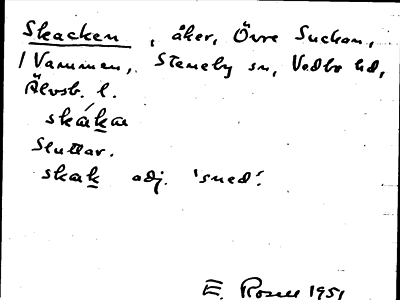 Skacken, åker, Övre Suckan,
/ Vammen, Steneby sn, Vedbo hd,
Älvsb. l.
skákaa
Sluttar.
skak adj. 'sned'.
E. Rosell 1951